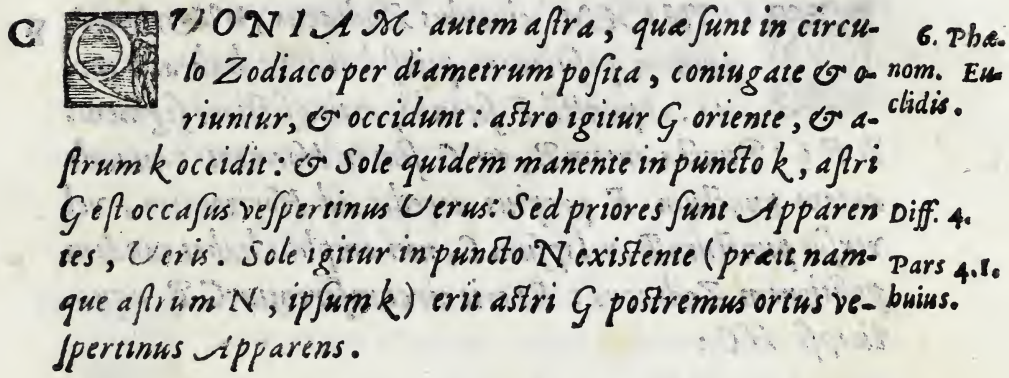 C QVONIAM autem aſtra, quæ ſunt in circu- 6. Phæ-
lo Zodiaco per diametrum poſita, coniugate & o- nom. Eu-
riuntur, & occidunt: aſtro igitur G oriente, & a- clidis.
ſtrum k occidit: & Sole quidem manente in puncto k, aſtri
G eſt occaſus veſpertinus Verus: Sed priores ſunt Apparen Diff. 4.
tes, Veris. Sole igitur in puncto N exiſtente (præit nam- Pars 4.1.
que aſtrum N, ipſum k) erit aſtri G poſtremus ortus ve- huius.
ſpertinus Apparens.